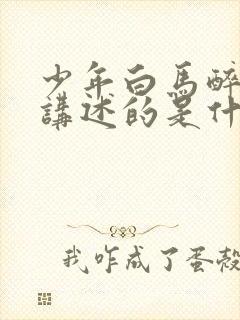 少年白馬醉
講述的是什
我咋成了蛋殼